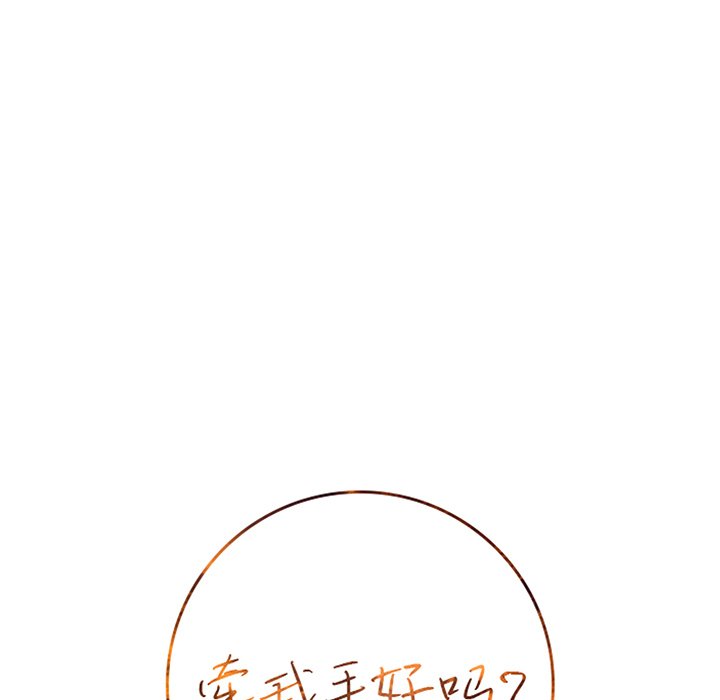 牵我手好吗?